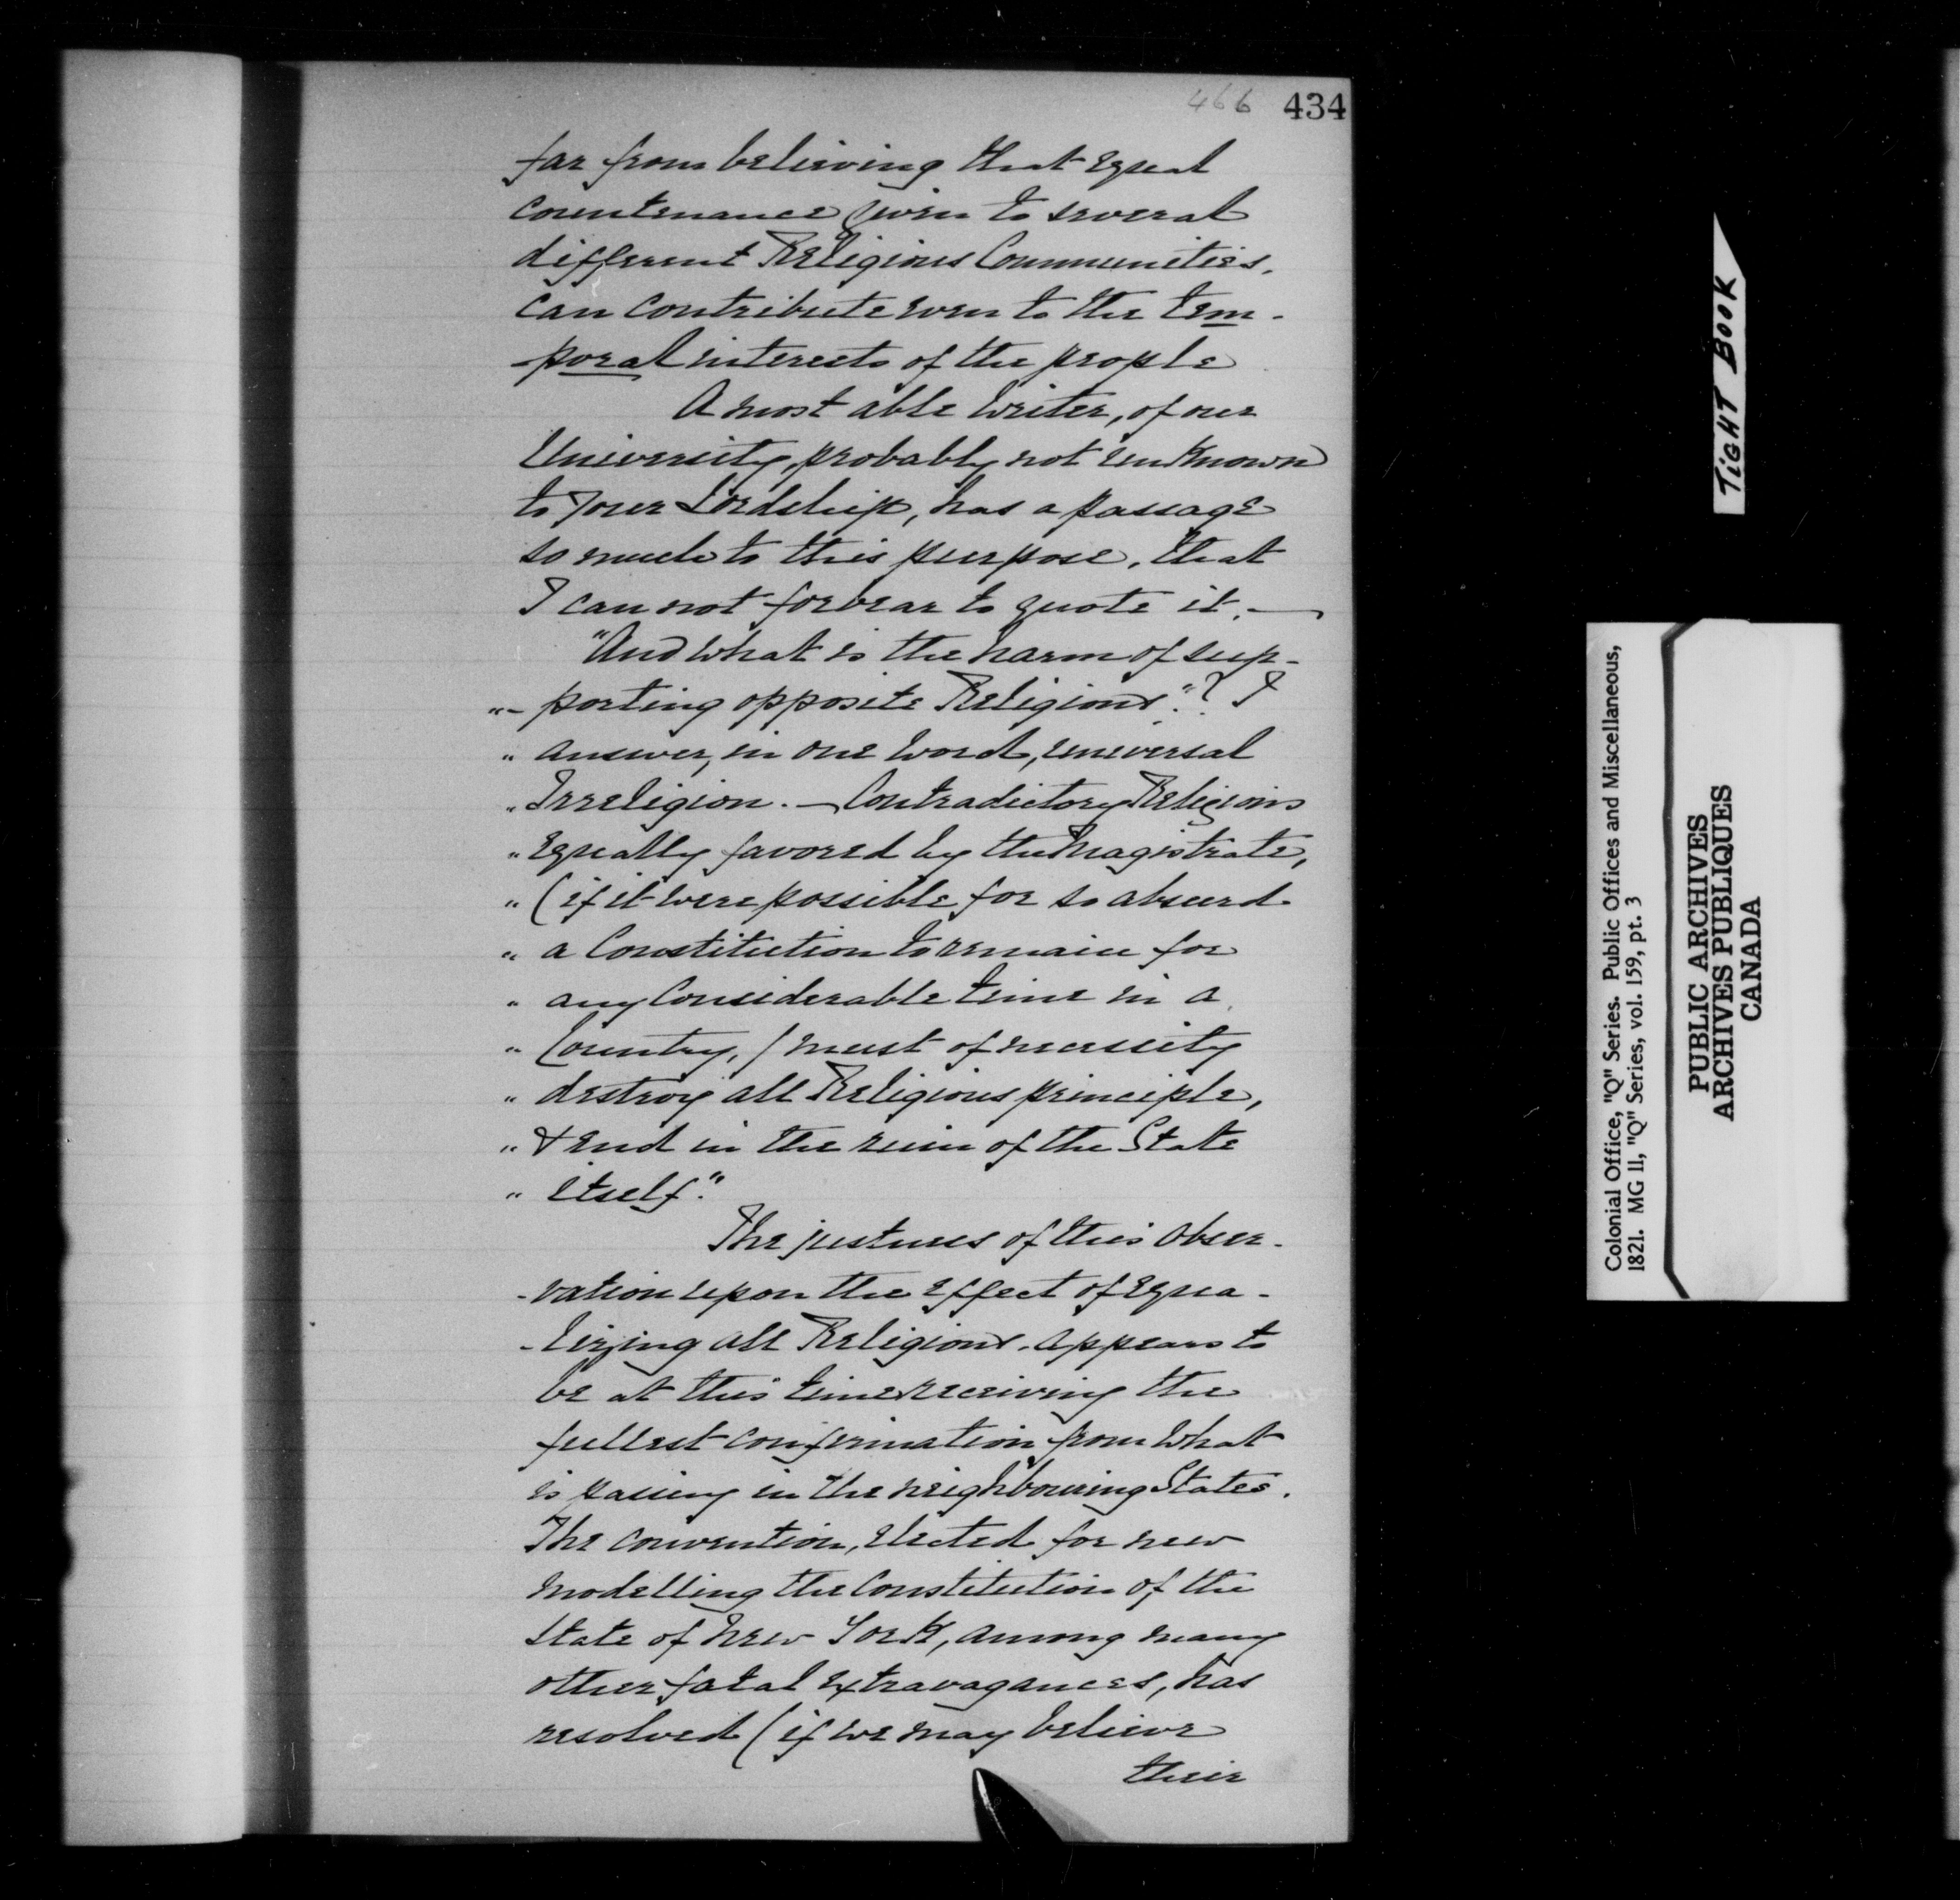 466 434
far from believing that equal
countenance given to several
different Religious Communities,
can contribute even to the tem-
-poral interests of the people
A most able writer, of our
University, probably not unknown
to your Lordship, has a passage
so much to this purpose, that
I can not forbear to quote it.—
"And what is the harm of sup-
"- porting opposite Religions."? I
" answer, in one word, universal
" Irreligion. — Contradictory Religions
" equally favored by the Magistrate,
" (if it were possible for so absurd
" a Constitution to remain for
" any Considerable time in a
" Country,) must of necessity
" destroy all Religious principle,
" & end in the ruin of the State
" itself."
The justness of this obser-
-vation upon the effect of equa-
-lizing all Religions, appears to
be at this time receiving the
fullest confirmation from what
is passing in the neighbouring States.
The convention, elected for new
modelling the Constitution of the
State of New York, among many
other fatal extravagances, has
resolved (if we may believe
their
TIGHT BOOK
Colonial Office, "Q" Series. Public Offices and Miscellaneous,
1821. MG 11, "Q" Series, vol. 159, pt. 3
PUBLIC ARCHIVES
ARCHIVES PUBLIQUES
CANADA